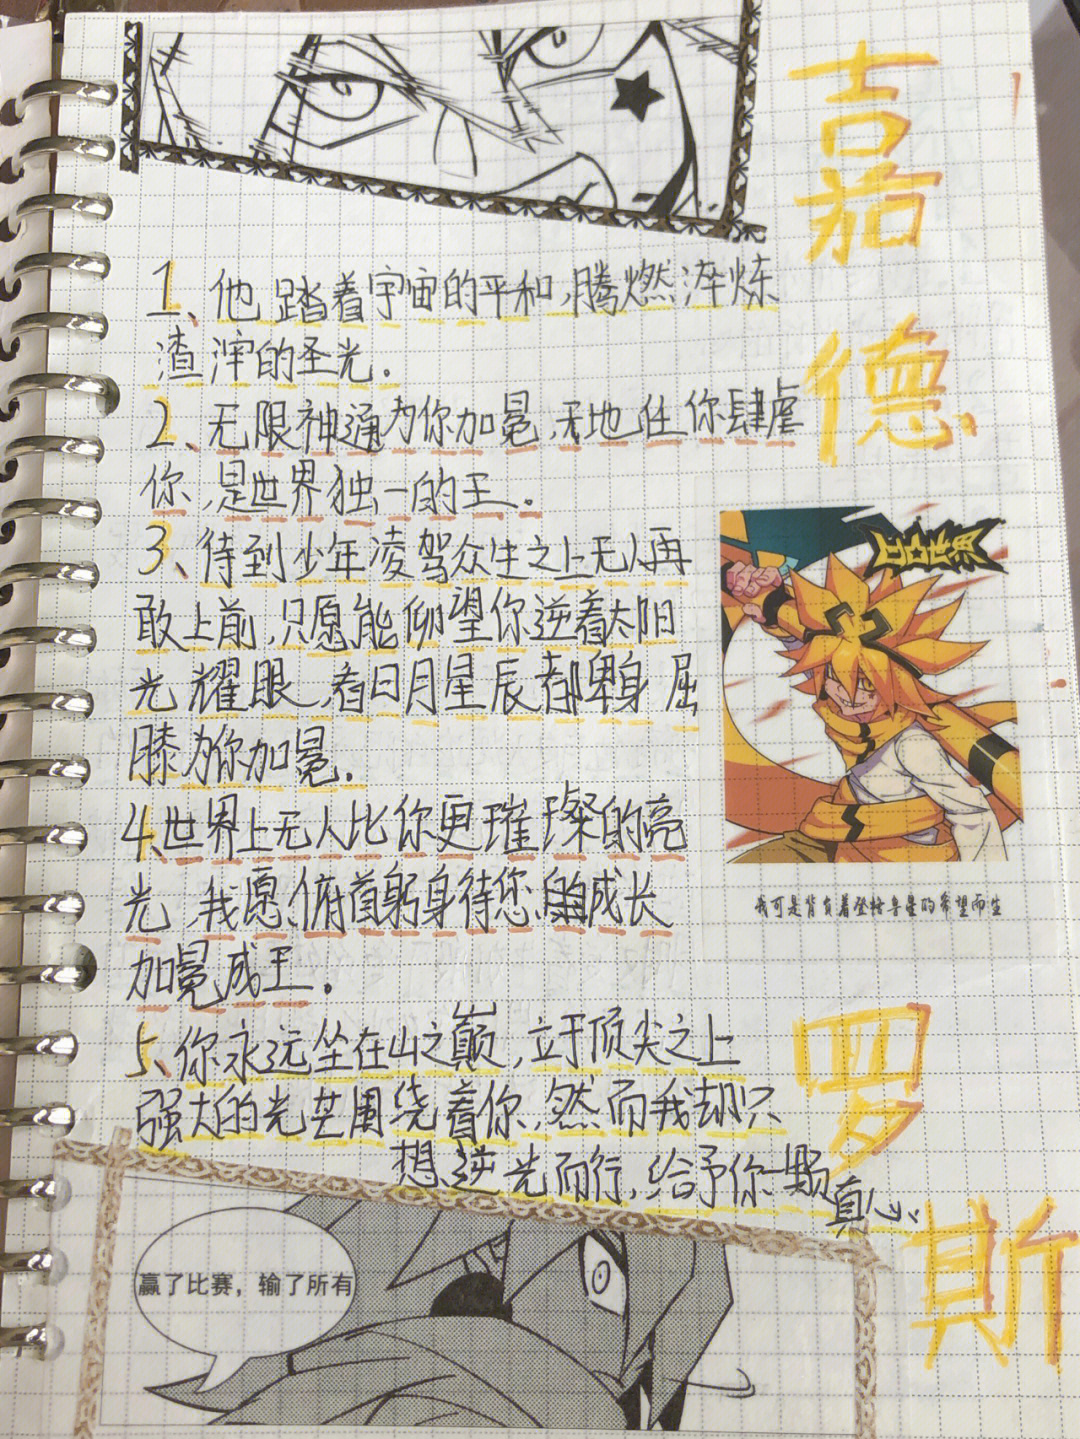 嘉德罗斯
1、他踏着宇宙的平和,腾燃淬炼
渣滓的圣光.
2、无限神通为你加冕,天地任你肆虐
你,是世界独一的王。
3、待到少年凌驾众生之上无人再
敢上前,只愿能仰望你逆着太阳
光耀眼,看日月星辰都卑身屈
膝为你加冕.
4、世界上无人比你更璀璨的亮
光,我愿俯首躬身待您成长
加冕成王.
5、你永远坐在山之巅,立于顶尖之上
强大的光芒围绕着你,然而我却只
想逆光而行,给予你一颗
真心、
我可是背负着登格鲁星的希望而生
赢了比赛，输了所有